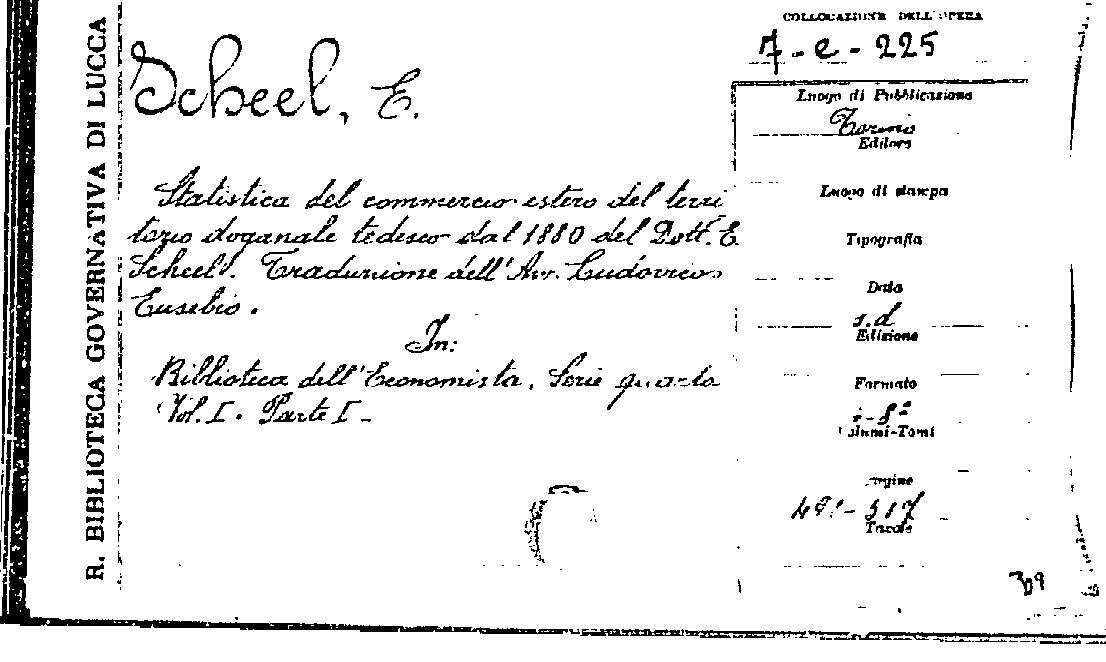 R. BIBLIOTECA GOVERNATIVA DI LUCCA
COLLOCAZIONE DELL'OPERA
7-e-225
Scheel, E.
Statistica del commercio estero del terri
torio doganale tedesco dal 1880 del Dott. E.
Scheel. Traduzione dell'Avv. Ludovico
Eusebio.
In:
Biblioteca dell'Economista, Serie quarta
Vol. I. Parte I-
Luogo di Pubblicazione
Torino
Editore
Luogo di stampa
Tipografia
Data
s.d
Edizione
Formato
i-8°
Volumi-Tomi
Pagine
Tavole